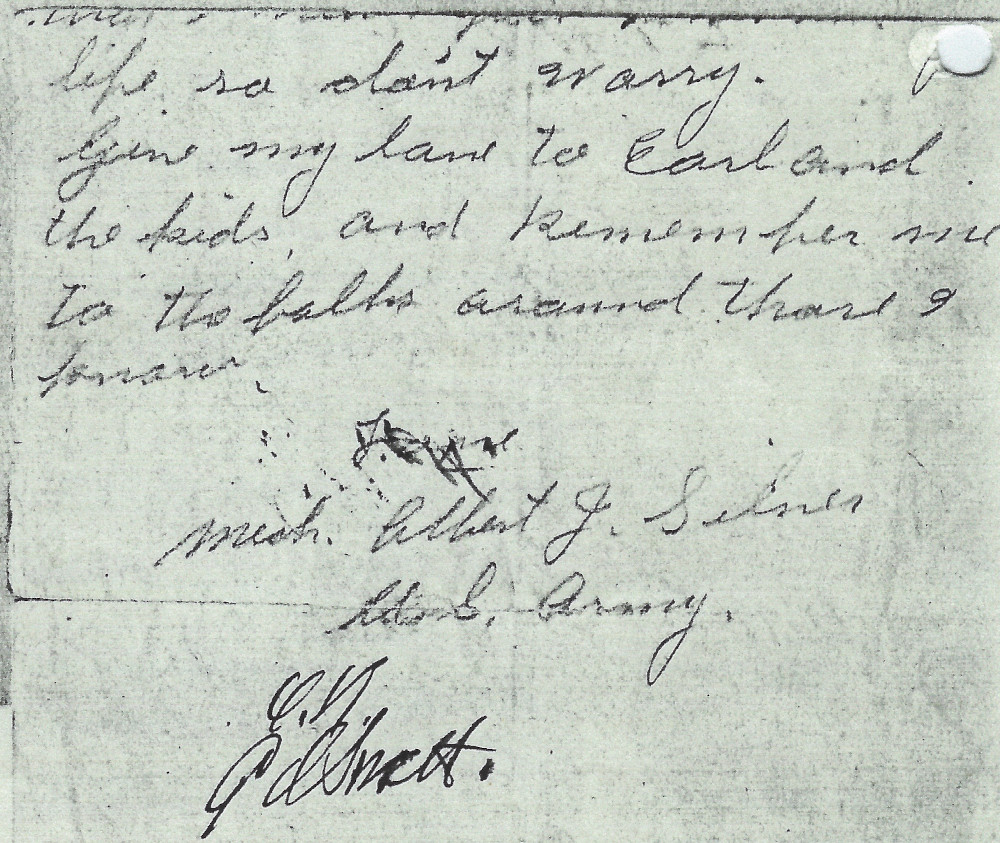 life so don't worry.
Give my love to Earl and
the kids, and Remember me
to the folks around there I
know.
Mech. Albert J. Silner
U.S. Army.